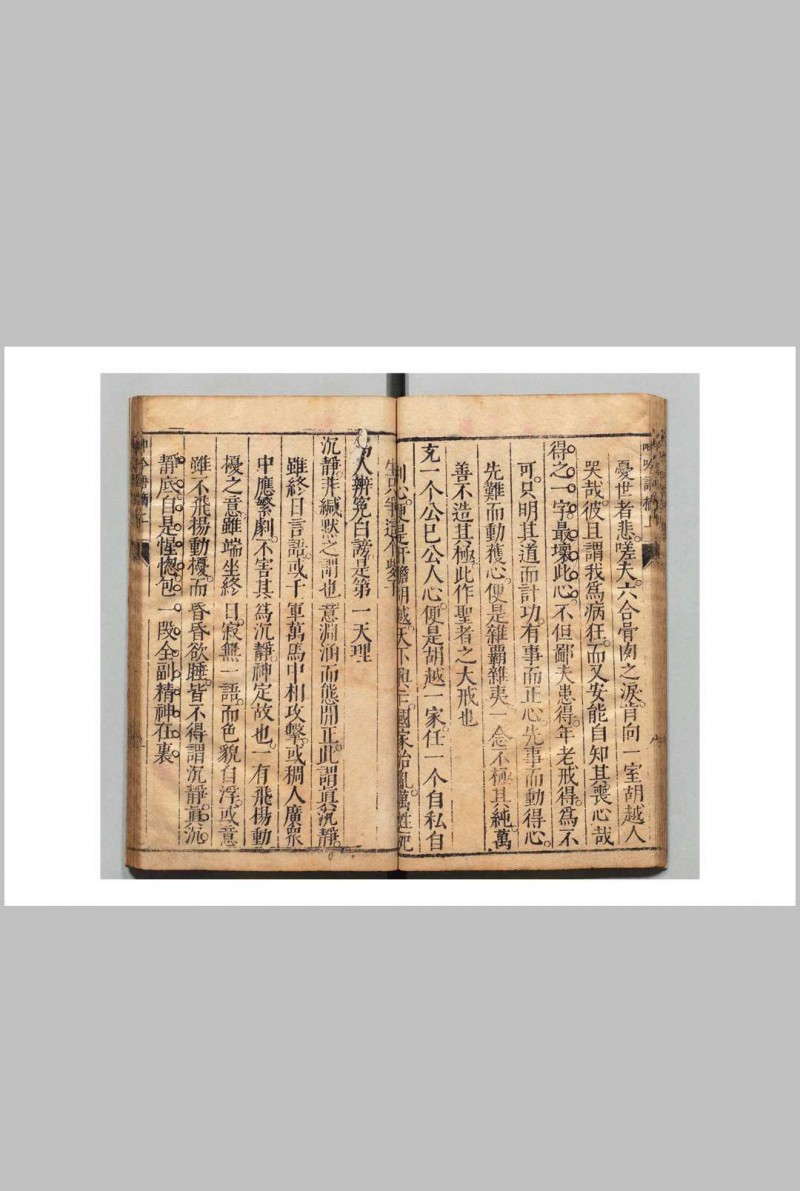 憂世者悲。嗟夫。六合骨肉之淚。肯向一室胡越人
哭哉。彼且謂我爲病狂。而又安能自知其喪心哉
得之一字。最壞此心。不但鄙夫患得。年老戒得。爲不
可。只明其道而計功。有事而正心。先事而動得心。
先難而動獲心。便是雜霸雜夷。一念不極其純。萬
善不造其極。此作聖者之大戒也
充一个公已公人心。便是胡越一家。任一个自私自
利心。便是肝膽胡越。天下與亡。國家治亂。萬姓死
生。只爭這个
人辨冤白謗。是第一天理
沉靜。非緘默之謂也。意淵涵而態閒正。此謂眞沉靜。
雖終日言語。或千軍萬馬中相攻擊。或稠人廣衆
中應繁劇。不害其爲沉靜。神定故也。一有飛揚動
擾之意。雖端坐終日。寂無一語。而色貌自浮。或意
雖不飛揚動擾。而昏昏欲睡。皆不得謂沉靜。眞沉
靜底自是惺憁包一段全副精神在裏。